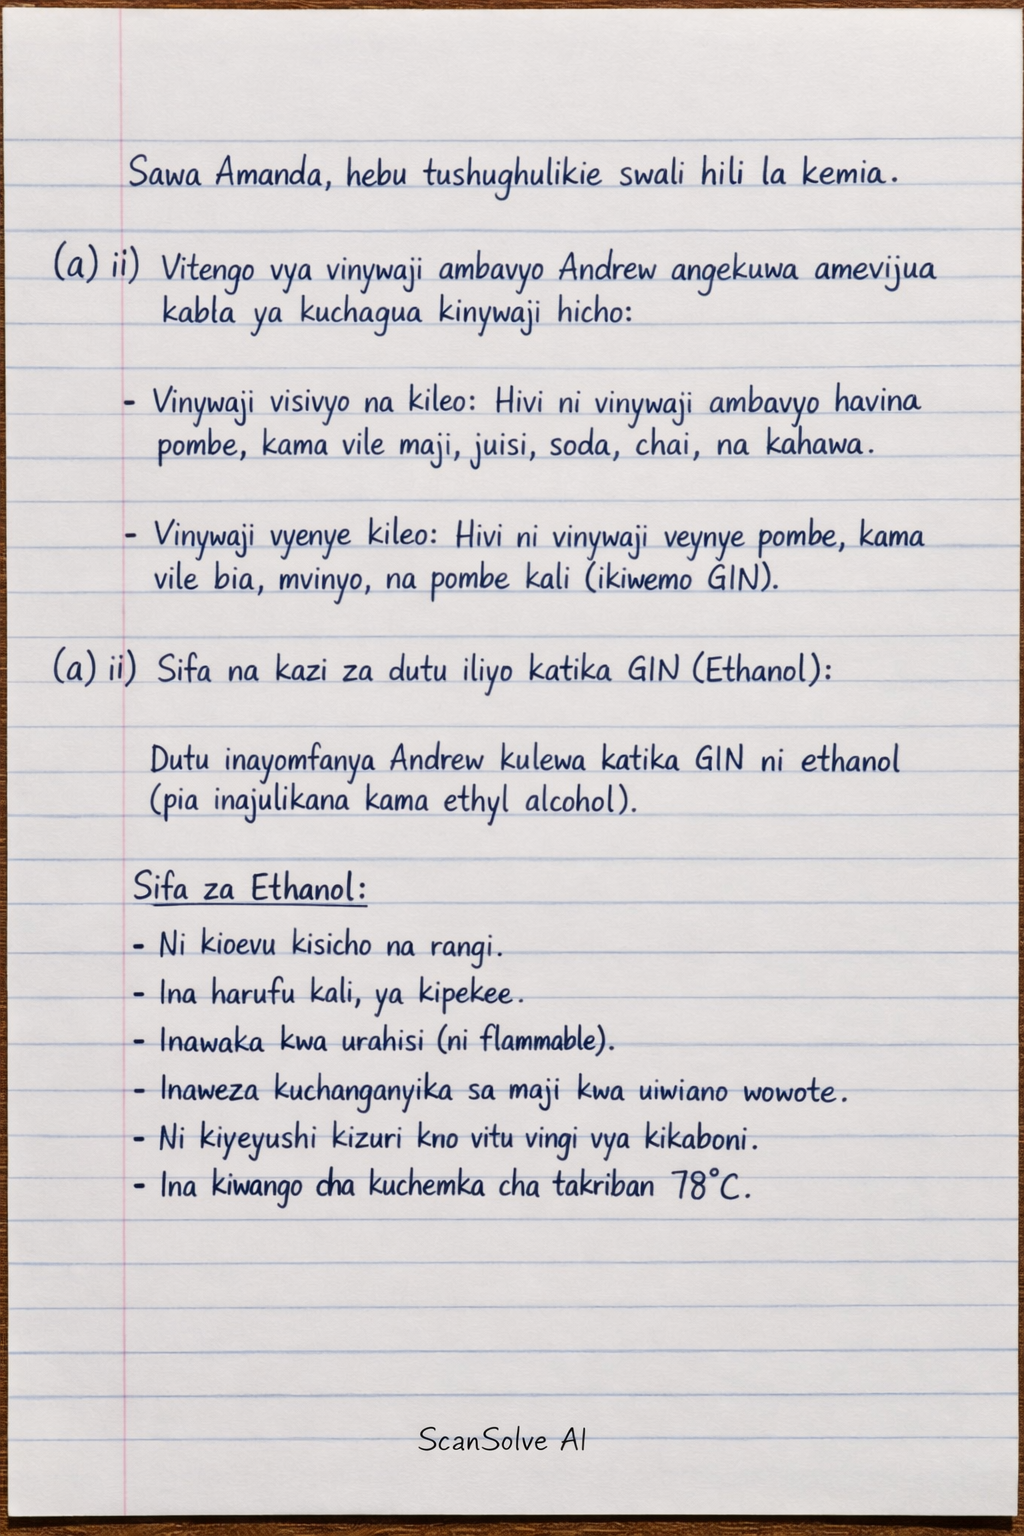 Sawa Amanda, hebu tushughulikie swali hili la kemia.
(a) ii) Vitengo vya vinywaji ambavyo Andrew angekuwa amevijua
kabla ya kuchagua kinywaji hicho:
- Vinywaji visivyo na kileo: Hivi ni vinywaji ambavyo havina
pombe, kama vile maji, juisi, soda, chai, na kahawa.
- Vinywaji vyenye kileo: Hivi ni vinywaji veynye pombe, kama
vile bia, mvinyo, na pombe kali (ikiwemo GIN).
(a) ii) Sifa na kazi za dutu iliyo katika GIN (Ethanol):
Dutu inayomfanya Andrew kulewa katika GIN ni ethanol
(pia inajulikana kama ethyl alcohol).
Sifa za Ethanol:
- Ni kioevu kisicho na rangi.
- Ina harufu kali, ya kipekee.
- Inawaka kwa urahisi (ni flammable).
- Inaweza kuchanganyika sa maji kwa uiwiano wowote.
- Ni kiyeyushi kizuri kno vitu vingi vya kikaboni.
- Ina kiwango cha kuchemka cha takriban 78°C.
ScanSolve AI